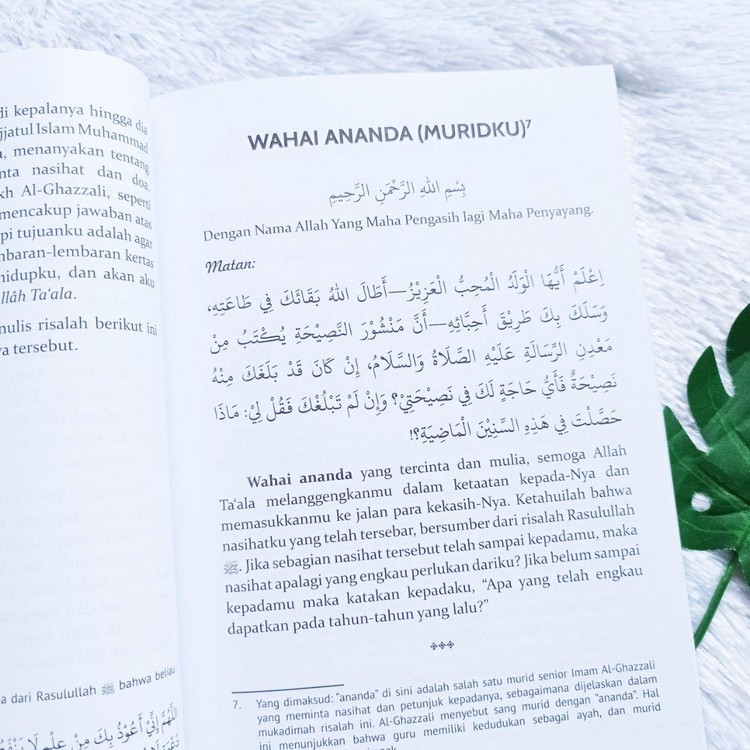 di kepalanya hingga dia
jjatul Islam Muhammad
, menanyakan tentang
nta nasihat dan doa.
kh Al-Ghazzali, seperti
mencakup jawaban atas
pi tujuanku adalah agar
mbaran-lembaran kertas
hidupku, dan akan aku
llâh Ta'ala.
nulis risalah berikut ini
a tersebut.
a dari Rasulullah ﷺ bahwa beliau
اَللّٰهُمَّ إِنِّي أَعُوْذُ بِكَ مِنْ عِلْمٍ لَا يَنْفَعُ
WAHAI ANANDA (MURIDKU)⁷
بِسْمِ اللهِ الرَّحْمَنِ الرَّحِيْمِ
Dengan Nama Allah Yang Maha Pengasih lagi Maha Penyayang.
Matan:
اِعْلَمْ أَيُّهَا الْوَلَدُ الْمُحِبُّ الْعَزِيْزُ—أَطَالَ اللهُ بَقَائَكَ فِي طَاعَتِهِ،
وَسَلَكَ بِكَ طَرِيْقَ أَحِبَّائِهِ—أَنَّ مَنْشُوْرَ النَّصِيْحَةِ يُكْتَبُ مِنْ
مَعْدِنِ الرِّسَالَةِ عَلَيْهِ الصَّلَاةُ وَالسَّلَامُ، إِنْ كَانَ قَدْ بَلَغَكَ مِنْهُ
نَصِيْحَةٌ فَأَيُّ حَاجَةٍ لَكَ فِي نَصِيْحَتِيْ؟ وَإِنْ لَمْ تَبْلُغْكَ فَقُلْ لِيْ: مَاذَا
حَصَّلْتَ فِي هَذِهِ السِّنِيْنَ الْمَاضِيَةِ؟!
Wahai ananda yang tercinta dan mulia, semoga Allah
Ta'ala melanggengkanmu dalam ketaatan kepada-Nya dan
memasukkanmu ke jalan para kekasih-Nya. Ketahuilah bahwa
nasihatku yang telah tersebar, bersumber dari risalah Rasulullah
ﷺ. Jika sebagian nasihat tersebut telah sampai kepadamu, maka
nasihat apalagi yang engkau perlukan dariku? Jika belum sampai
kepadamu maka katakan kepadaku, “Apa yang telah engkau
dapatkan pada tahun-tahun yang lalu?”
7. Yang dimaksud: “ananda” di sini adalah salah satu murid senior Imam Al-Ghazzali
yang meminta nasihat dan petunjuk kepadanya, sebagaimana dijelaskan dalam
mukadimah risalah ini. Al-Ghazzali menyebut sang murid dengan “ananda”. Hal
ini menunjukkan bahwa guru memiliki kedudukan sebagai ayah, dan murid